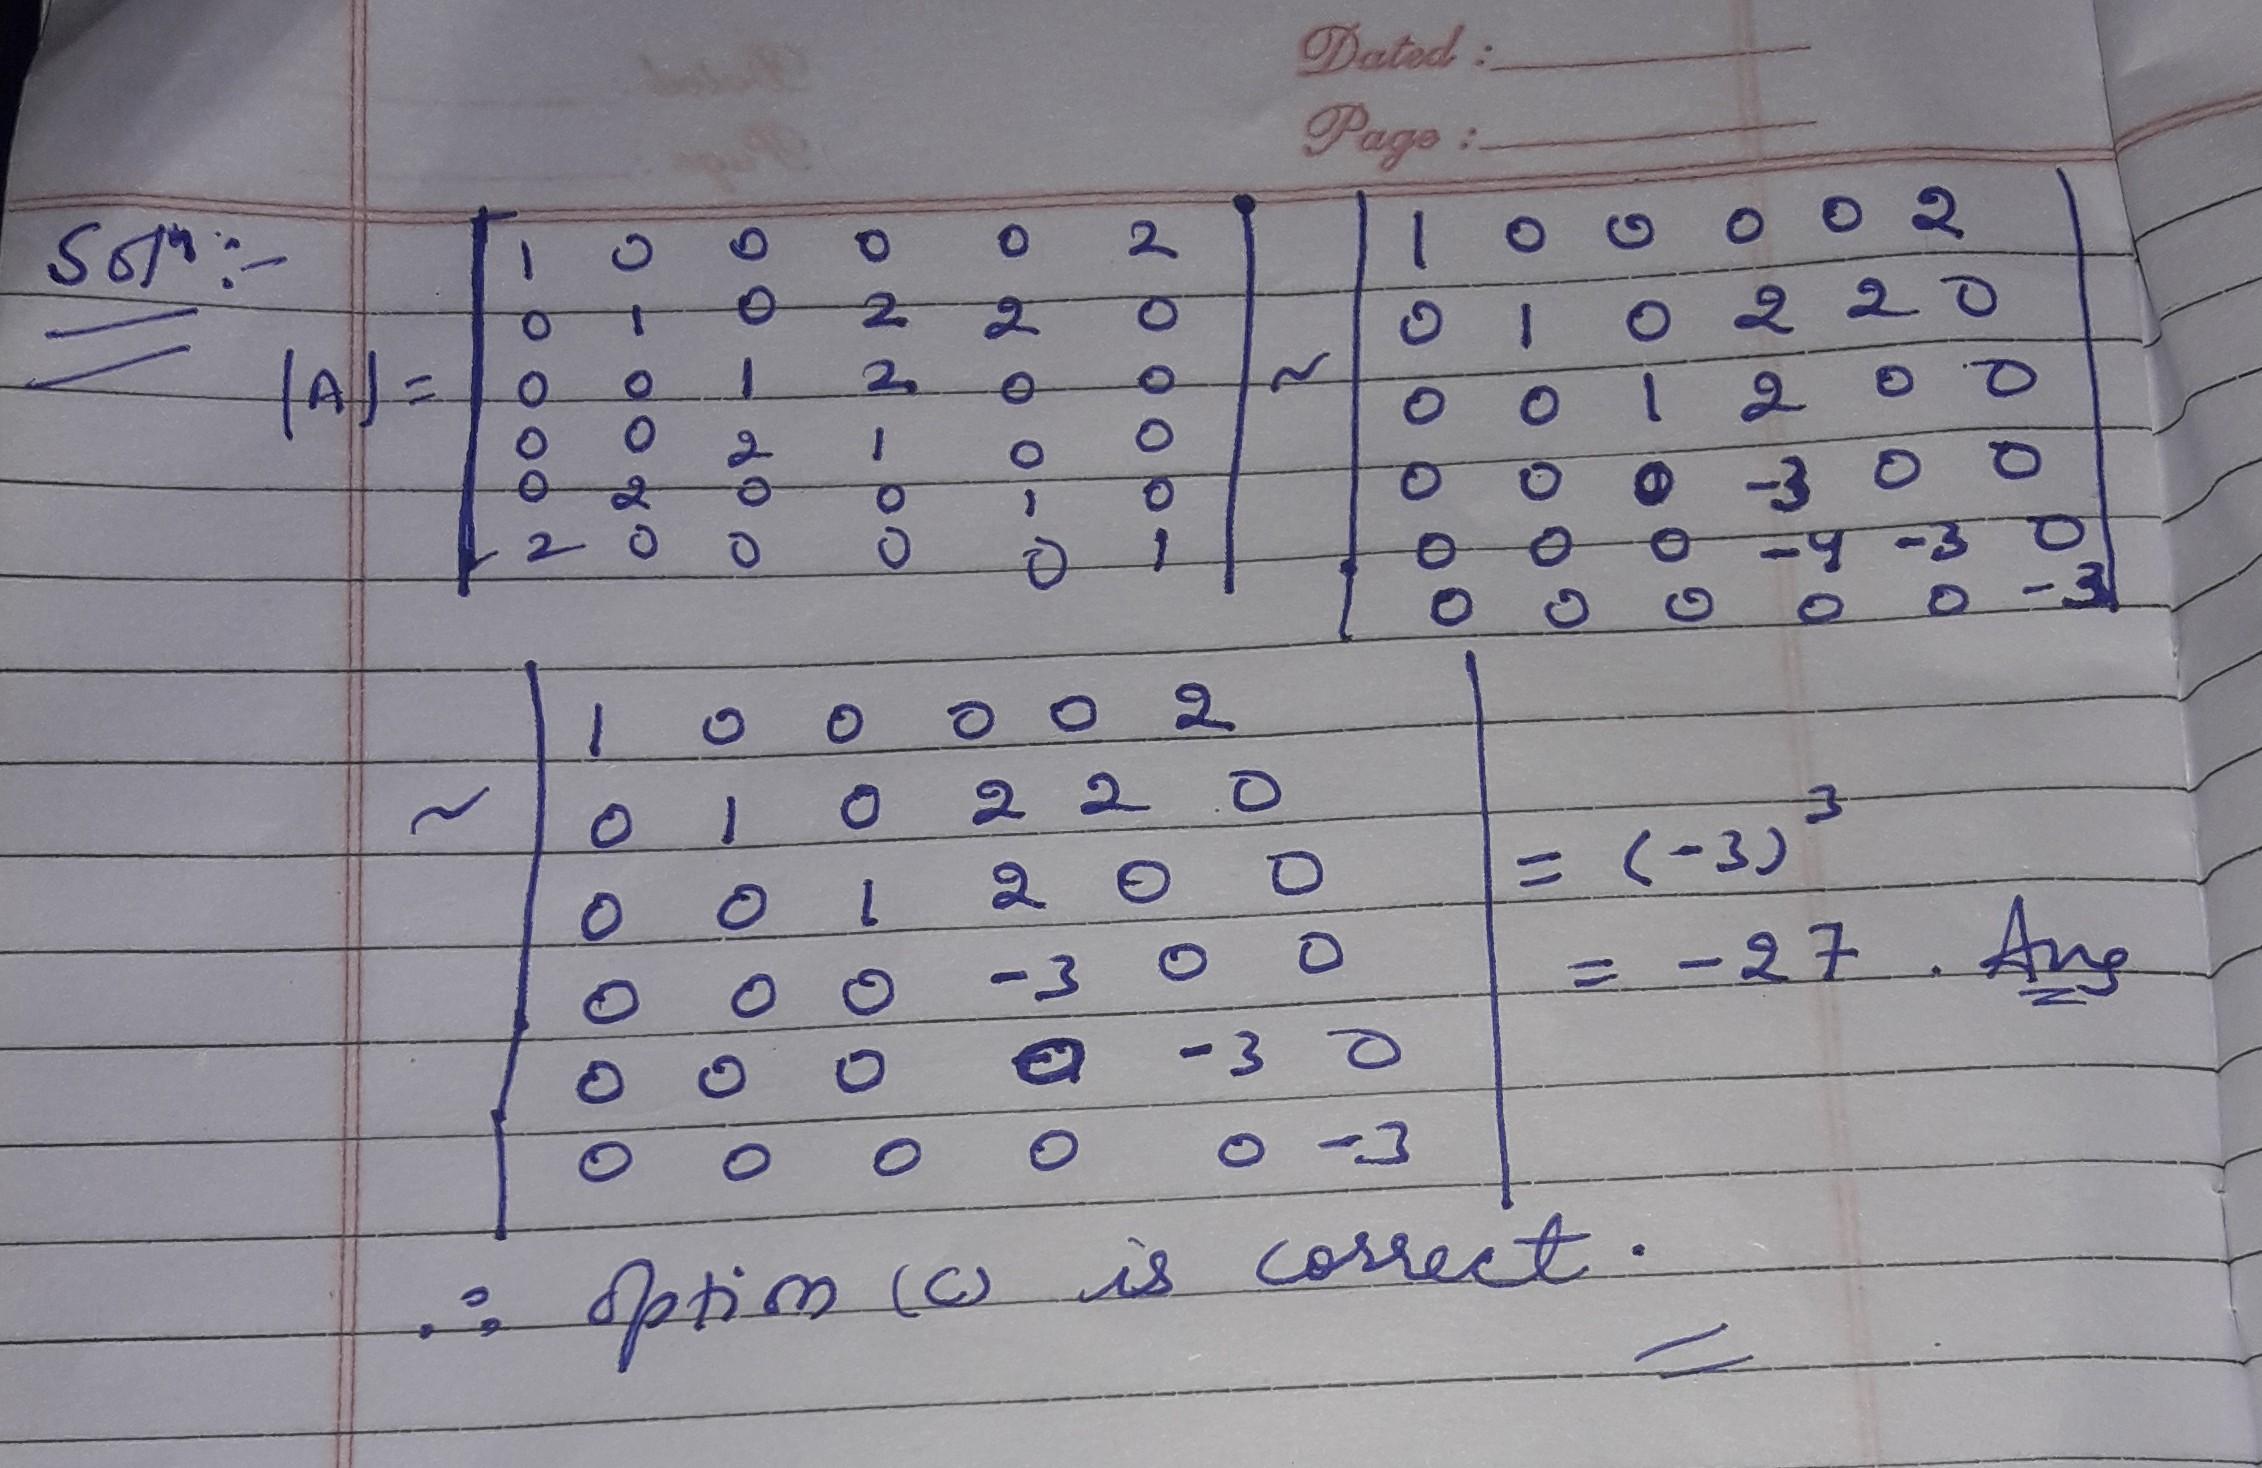 Dated :
Page :
Soln :-
|A| =
1 0 0 0 0 2
0 1 0 2 2 0
0 0 1 2 0 0
0 0 2 1 0 0
0 2 0 0 1 0
2 0 0 0 0 1
~
1 0 0 0 0 2
0 1 0 2 2 0
0 0 1 2 0 0
0 0 0 -3 0 0
0 0 0 -4 -3 0
0 0 0 0 0 -3
~
1 0 0 0 0 2
0 1 0 2 2 0
0 0 1 2 0 0
0 0 0 -3 0 0
0 0 0 0 -3 0
0 0 0 0 0 -3
= (-3)³
= -27 . Ans
∴ Option (c) is correct.